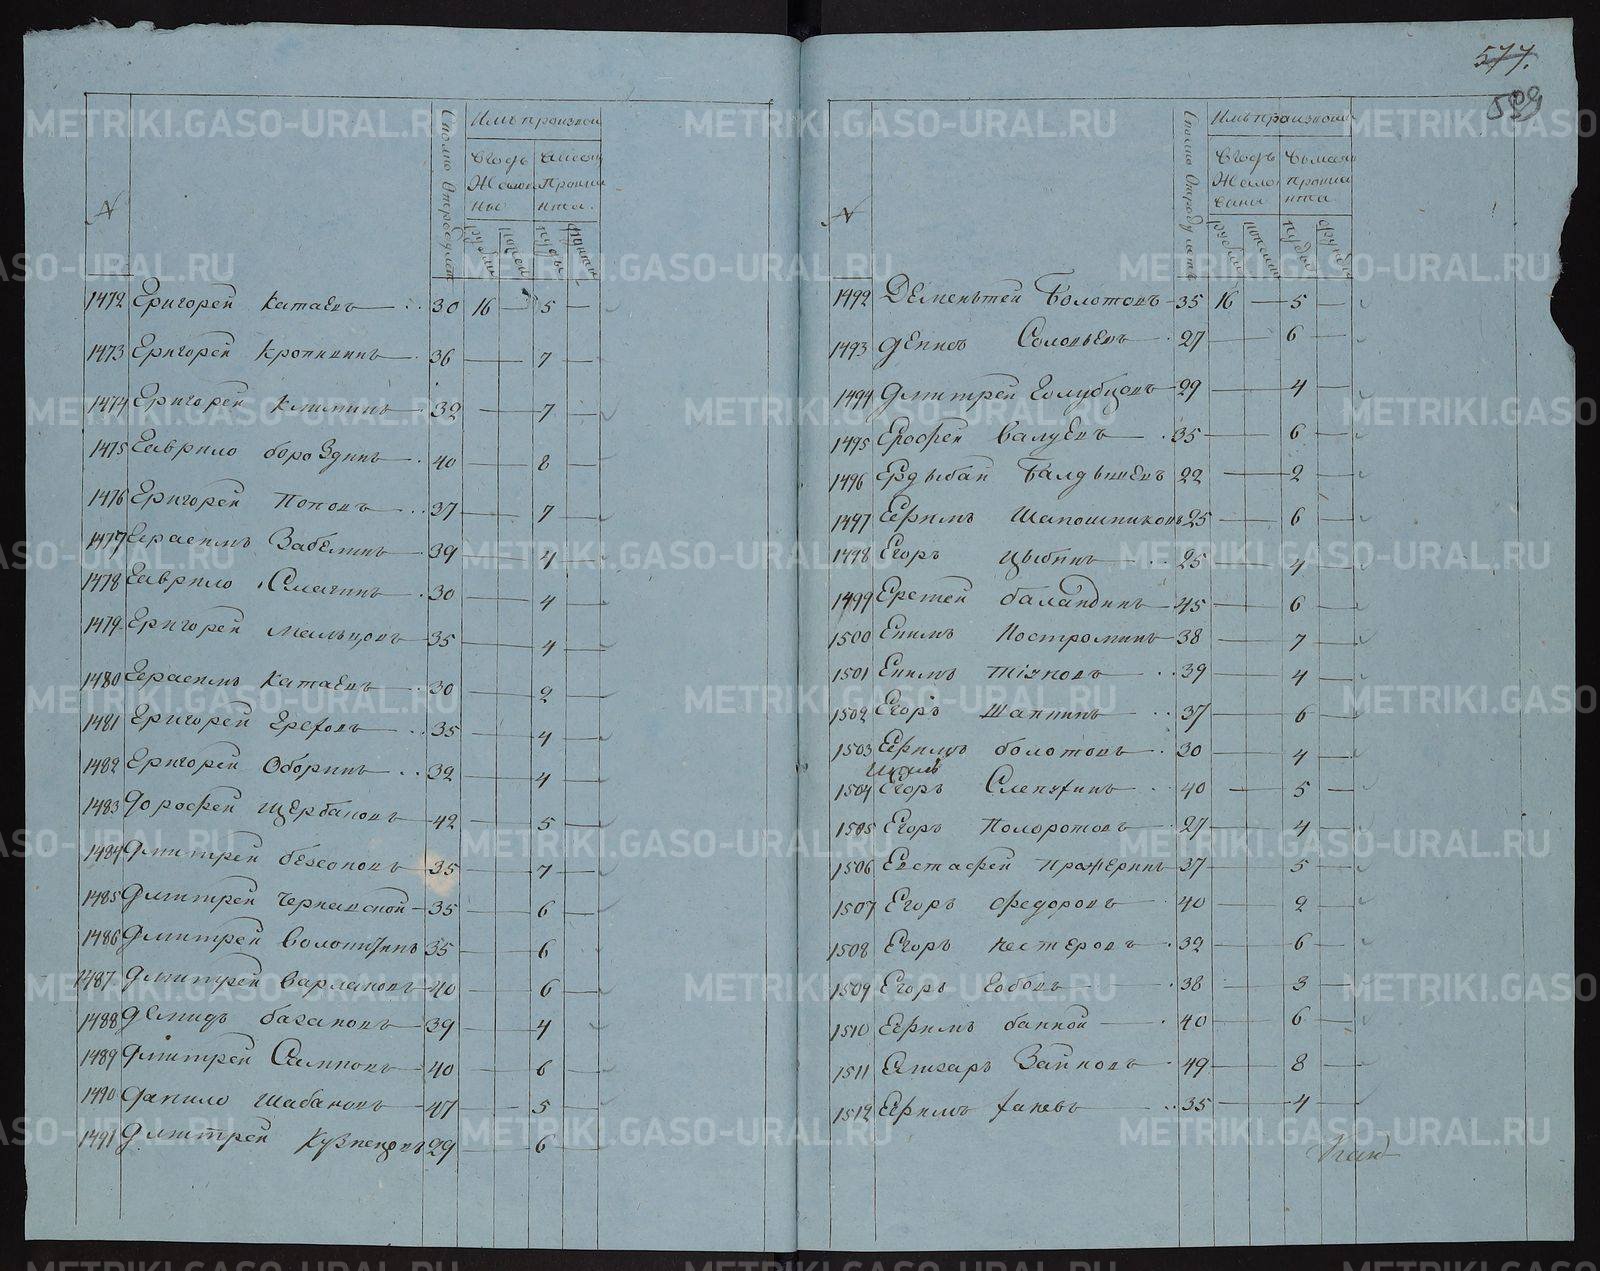 577.
599
№
Сколко отроду лет
Имъ произвои
Вгодъ Жалованья
Вмесец Правианта.
рубли
копеи
пуды
фунты
1472 Григорей Катаевъ 30 16 5
1473 Григорей Кропининъ 36 7
1474 Григорей Климинъ 32 7
1475 Гаврило бороздинъ 40 8
1476 Григорей Поповъ 37 7
1477 Герасимъ Забелинъ 39 4
1478 Гаврило Смагинъ 30 4
1479 Григорей Мальцовъ 35 4
1480 Герасимъ Катаевъ 30 2
1481 Григорей Греховъ 35 4
1482 Григорей Оборинъ 32 4
1483 Дорофей Щербаковъ 42 5
1484 Дмитрей безсоновъ 35 7
1485 Дмитрей Чернавской 35 6
1486 Дмитрей 35 6
1487 Дмитрей Варлаковъ 40 6
1488 Демидъ базановъ 39 4
1489 Дмитрей 40 6
1490 Данило Шабановъ 47 5
1491 Дмитрей Кузнецовъ 29 6
№
Сколко Отроду летъ
Имъ произвои
Вгодъ Жалованья
Правианта
рубли
копеи
пуды
фунты
1492 Дементей Болотовъ 35 16 5
1493 Денисъ Соловьевъ 27 6
1494 Дмитрей Голубцовъ 29 4
1495 Ерофей Валуевъ 35 6
1496 Балдышевъ 22 2
1497 Ефимъ Шапошниковъ 25 6
1498 Егоръ Цыбинъ 25 4
1499 баландинъ 45 6
1500 Екимъ Костроминъ 38 7
1501 Екимъ 39 4
1502 Егоръ Шапкинъ 37 6
1503 Ефимъ болотовъ 30 4
1504 Егоръ Слепухинъ 40 5
1505 Егоръ Полоротовъ 27 4
1506 Евстафей Пражеринъ 37 5
1507 Егоръ Федоровъ 40 2
1508 Егоръ Нестеровъ 32 6
1509 Егоръ Бобовъ 38 3
1510 Ефимъ банной 40 6
1511 Зайковъ 49 8
1512 Ефимъ 35 4
METRIKI.GASO-URAL.RU